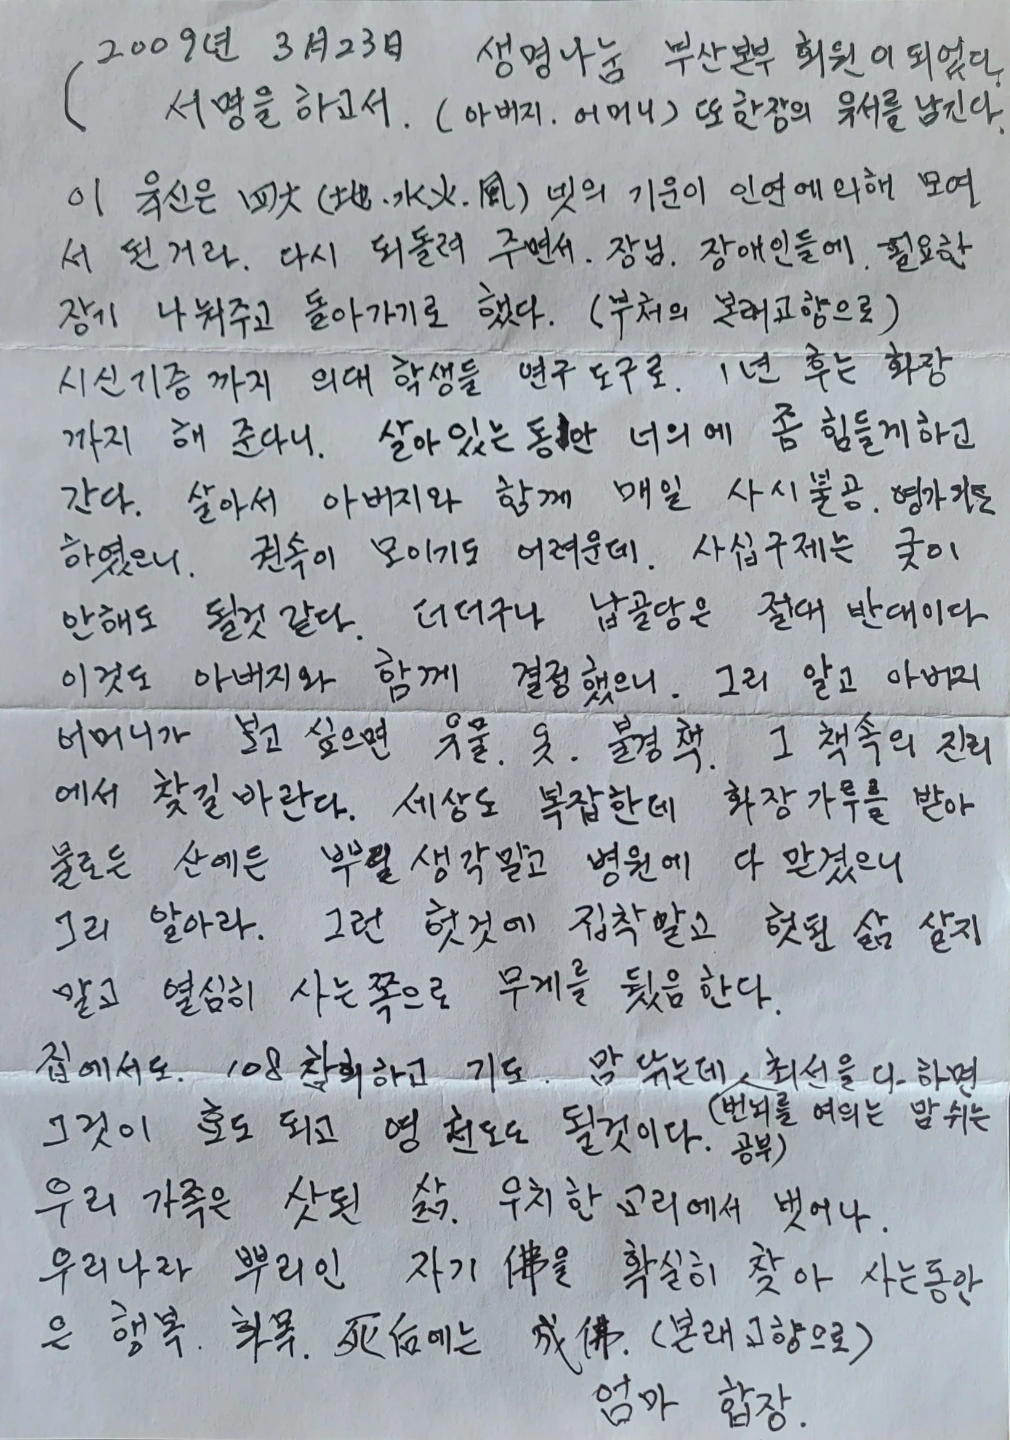 2009년 3月23日 생명나눔 부산본부 회원이 되었다.
서명을 하고서. (아버지. 어머니) 또 한장의 유서를 남긴다.
이 육신은 四大 (地.水.火.風) 넷의 기운이 인연에 의해 모여
서 된거라. 다시 되돌려 주면서. 장님. 장애인들에 필요한
장기 나눠주고 돌아가기로 했다. (부처의 본래고향으로)
시신기증까지 의대 학생들 연구도구로. 1년 후는 화장
까지 해 준다니. 살아있는 동안 너의에 좀 힘들게하고
간다. 살아서 아버지와 함께 매일 사시불공. 영가기도
하였으니. 권속이 모이기도 어려운데. 사십구제는 굿이
안해도 될것 같다. 더더구나 납골당은 절대 반대이다
이것도 아버지와 함께 결정했으니. 그리 알고 아버지
어머니가 보고 싶으면 유물. 옷. 불경책. 그 책속의 진리
에서 찾길 바란다. 세상도 복잡한데 화장가루를 받아
물로든 산에든 뿌릴 생각말고 병원에 다 맏겼으니
그리 알아라. 그런 헛것에 집착말고 헛된 삶 살지
말고 열심히 사는쪽으로 무게를 뒀음 한다.
집에서도. 108 참회하고 기도. 맘 닦는데 최선을 다하면
그것이 효도 되고 영 천도도 될것이다. (번뇌를 여의는 맘 쉬는
공부)
우리 가족은 삿된 삶. 우치한 고리에서 벗어나.
우리나라 뿌리인 자기 佛을 확실히 찾아 사는동안
은 행복. 화목. 死后에는 成佛. (본래고향으로)
엄마 합장.